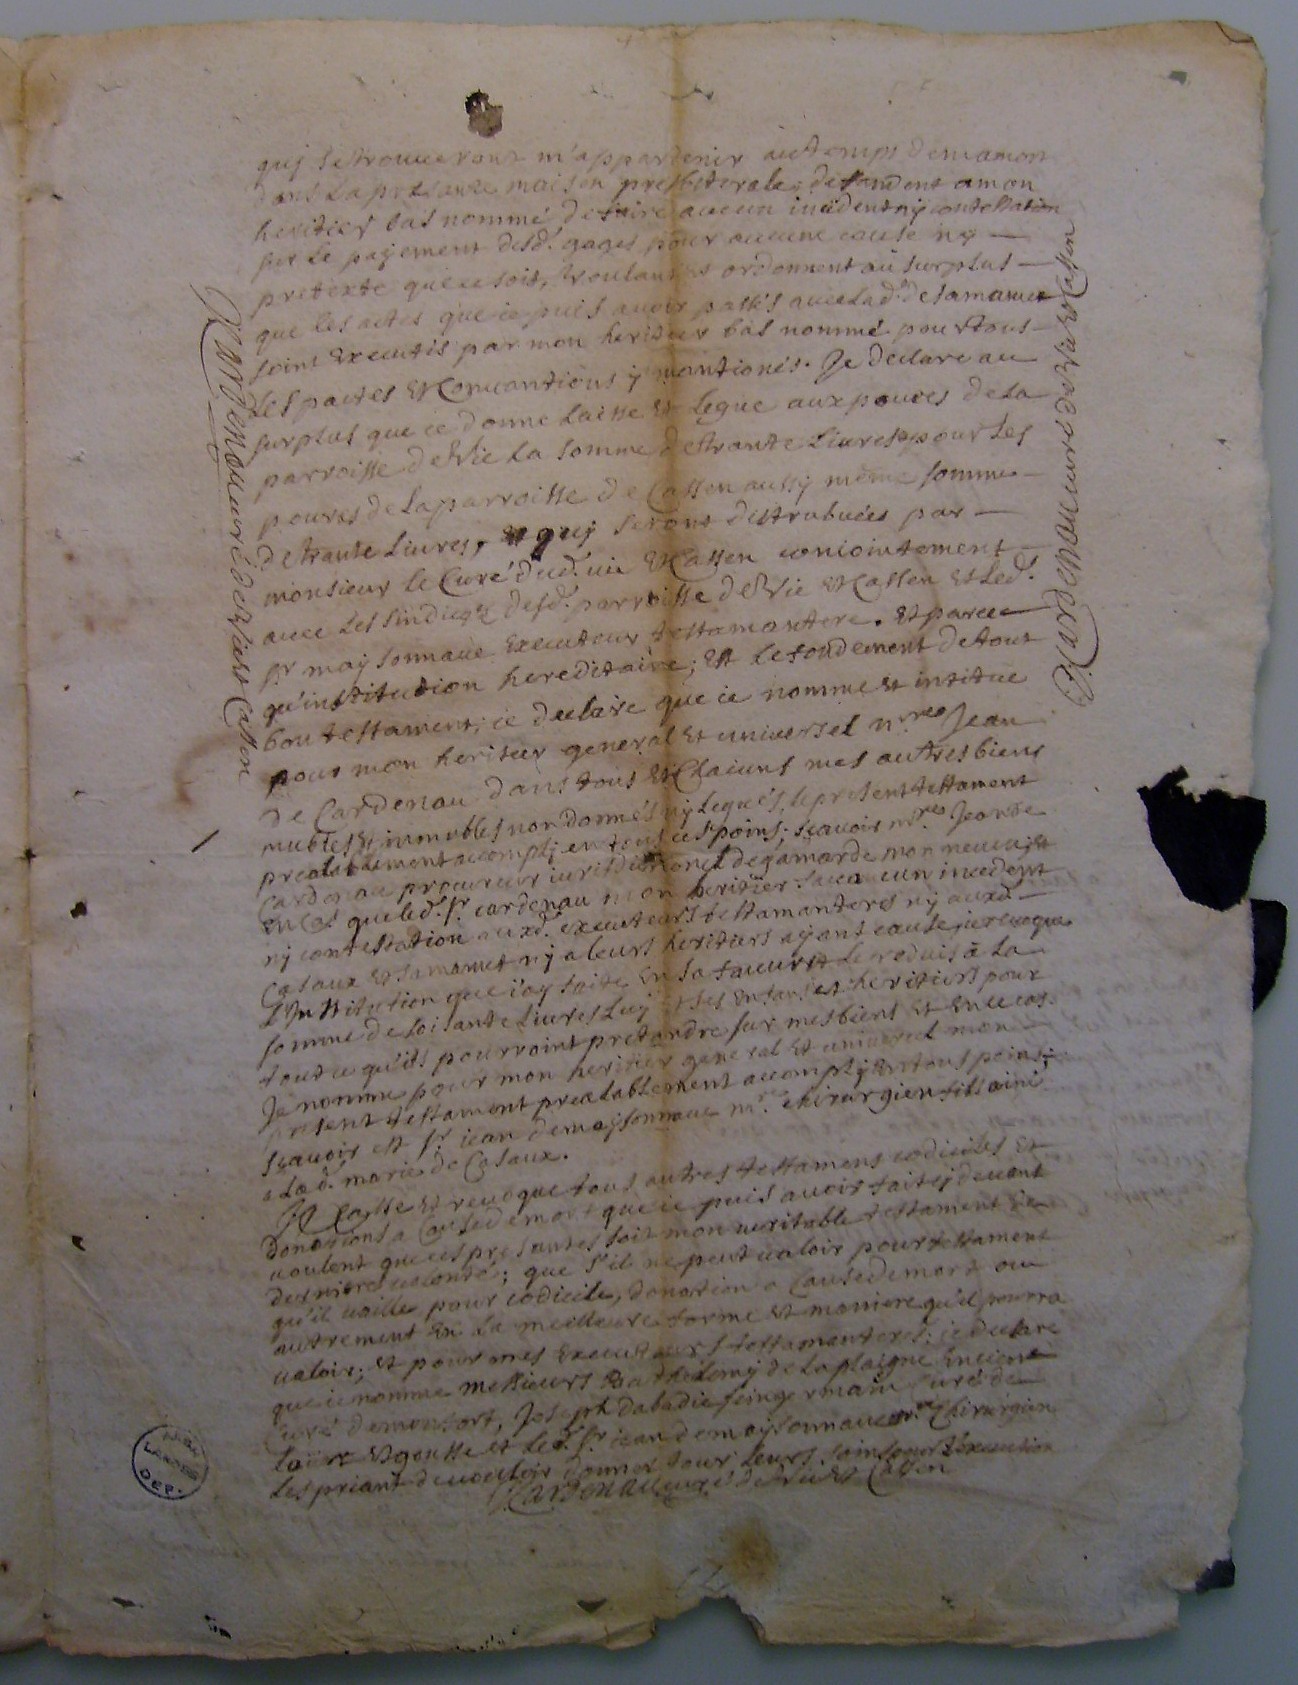 quj se trouveront m'appartenir au temps de ma mort
dans la presante maison presbiterale, defandent a mon
heritier bas nommé de faire aucun incident nÿ contestation
sur le paÿement desd. gages pour aucune cause nÿ
pretexte que ce soit, voulant et ordonnent au surplus
que les actes que ie puis avoir passés avec lad. desamanuet
soint executés par mon heritier bas nommé pour tous
les pactes et convantions ÿ mantionés. Je declare au
surplus que ie donne laisse et legue aux pouvres de la
parroisse de Vic la somme de trante livres, pour les
pouvres de la parroisse de Cassen aussÿ même somme
de trante livres, quj seront distrabuées par
monsieur le Curé dud. vic et Cassen conioiutement
avec les sindicqz desd. parroisse de Vic et Cassen et led.
sr. maÿsonnave executeur testamantere. Et parce
qu'institution hereditaire, est le fondement de tout
bon testament, ie declare que ie nomme et intitue
pour mon heritier general et universel mre Jean
de Cardenau dans tous et Chacuns mes autres biens
mubles et inmubles non donnés nÿ legués, le present testament
prealablement accomplj en tous ces poins; sçavoir mre Jean de
Cardenau procureur iurisdictionel de gamarde mon neveu et
en cas que led. sr. cardenau mon heritier aucun incident
nÿ contestation auxd. executeurs testamanteres nÿ auxd.
Casaux et samanuet nÿ a leurs heritiers aÿans cause, ie revoque
l'Institution que i'aÿ faite en sa faveur et le reduis à la
somme de soisante livres luÿ et ses enfans et heritiers pour
tout ce qu'ils pourroint pretandre sur mes biens et en ce cas
Je nomme pour mon heritier general et universel mon
present testament prealablement accomplÿ en tous poins;
sçavoir est sr. iean de maÿsonnave mre. chirurgien fils ainé
a lad. marie de Casaux.
Je Casse et revoque tous autres testamens codiciles et
donations a Cause de mort que ie puis avoir fait cÿ devant
voulent que ces presantes soit mon veritable testament et
derniere volonté; que s'il ne peut valoir pour testament
qu'il vaille pour codicile, donation a Cause de mort ou
autrement en la meilleure forme et maniere qu'il pourra
valoir; et pour mes executeurs testamanteres; ie declare
que ie nomme messieurs Barthelemÿ de Laplaigne encient
curé de monfort, Joseph dabadie seingermain curé de
et goutte et led. sr. iean de maÿsonnave mre. Chirurgien
les priant de vouloir donner tour leurs soins pour l'execution
Cardenau curé de vic et Cassen
Cardenau curé de Vic et Cassen
Cardenau curé de Vic et Cassen
ARCH.
LANDES
DEP.